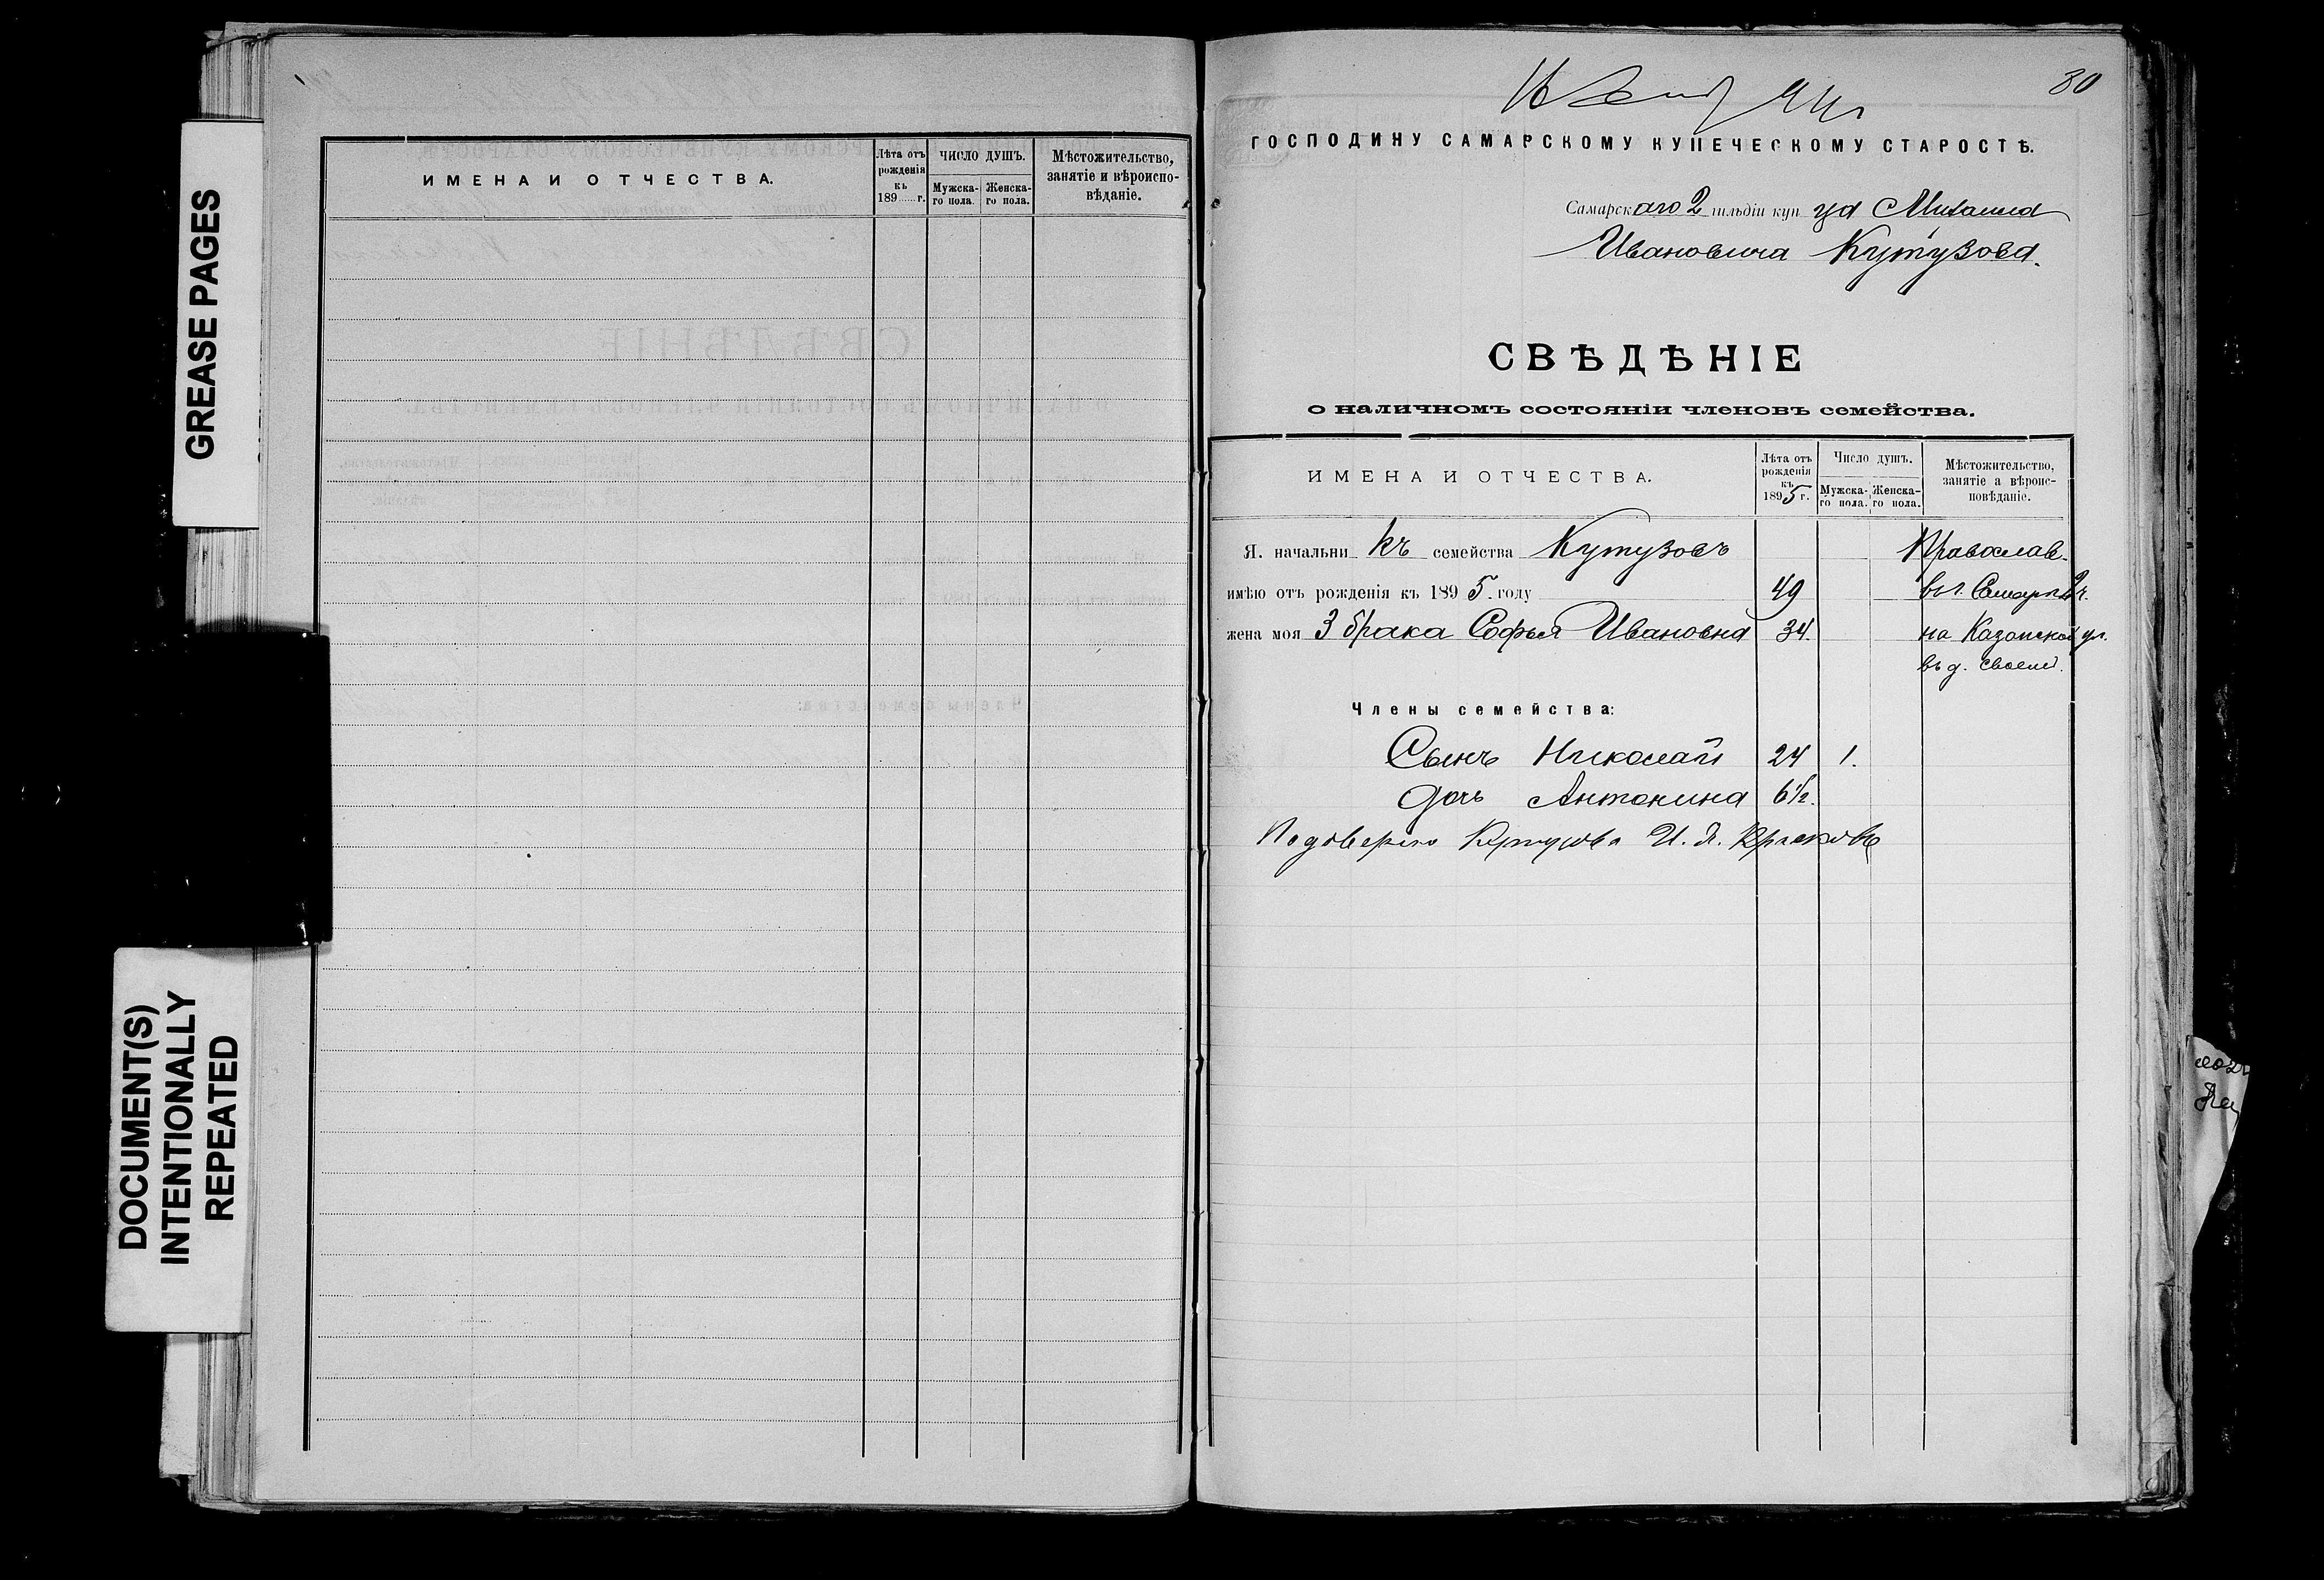 GREASE PAGES
DOCUMENT(S)
INTENTIONALLY
REPEATED
ИМЕНА И ОТЧЕСТВА.
Лѣта отъ рожденія къ 189 г.
ЧИСЛО ДУШЪ.
Мужска-го пола.
Женска-го пола.
Мѣстожительство, занятіе и вѣроиспо-вѣданіе.
80
ГОСПОДИНУ САМАРСКОМУ КУПЕЧЕСКОМУ СТАРОСТѢ.
Самарскаго 2 гильдіи купца Михаила
Ивановича Кутузова.
СВѢДѢНІЕ
о наличномъ состояніи членовъ семейства.
ИМЕНА И ОТЧЕСТВА.
Лѣта отъ рожденія къ 1895 г.
Число душъ.
Мужска-го пола.
Женска-го пола.
Мѣстожительство, занятіе а вѣроис-повѣданіе.
Я. начальникъ семейства Кутузовъ Православ.
имѣю отъ рожденія къ 1895. году 49 въ г. Самарѣ 2 ч.
жена моя 3 брака Софья Ивановна 34. на Казанской ул.
въ д. своемъ.
Члены семейства:
Сынъ Николай 24 1.
дочь Антонина 6 1/2.
По доверію Кутузова И. Я.